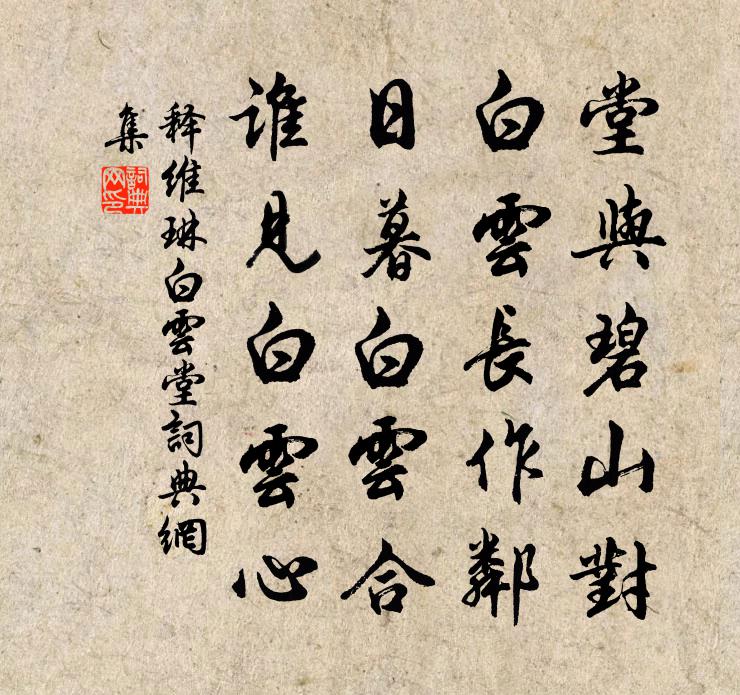 堂與碧山對
白雲長作鄰
日暮白雲合
誰見白雲心
释維琳白雲堂詞典網
集
詞典
网印